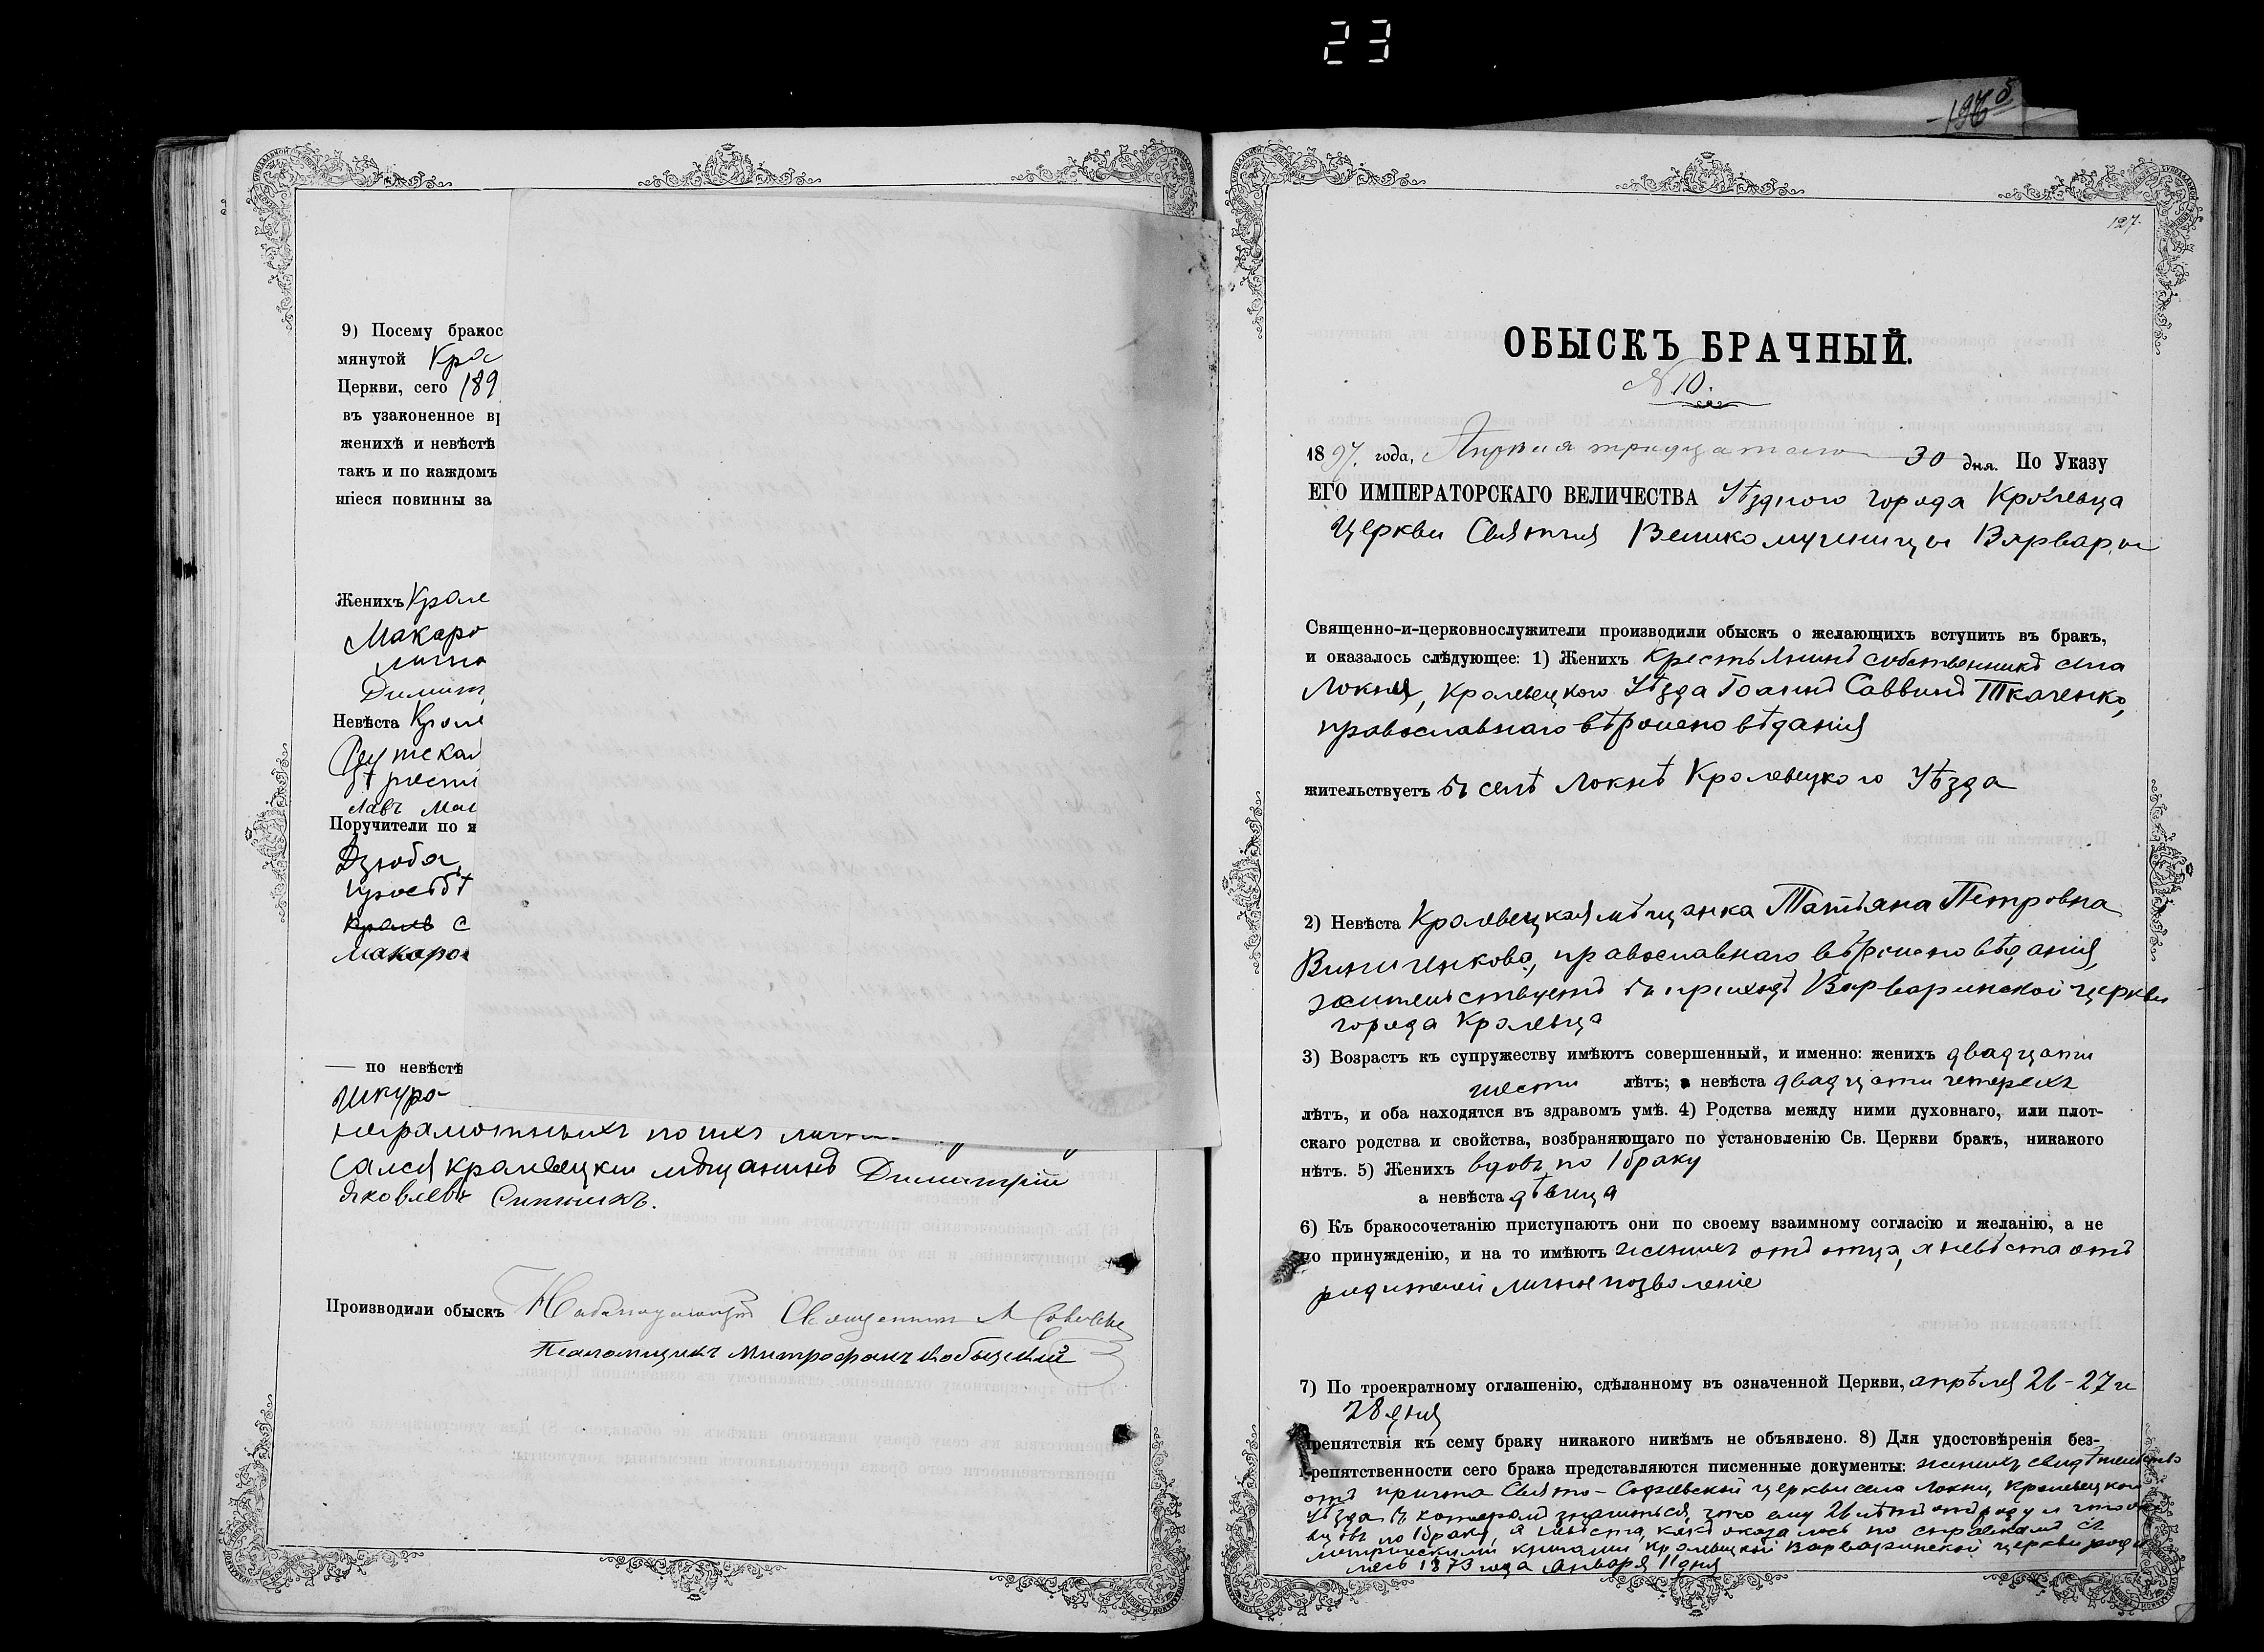 23
1978
9) Посему бракос
мянутой Крол
Церкви, сего 189
въ узаконенное вр
женихѣ и невѣстѣ
такъ и по каждомъ
шіеся повинны за
Женихъ Кроле
Макаро
лично
Димит
Невѣста Крол
Реутская
лавъ Мак
Поручители по я
Дзюба,
просьбѣ
Кроль с
Макаро
— по невѣстѣ
Шкуро
неграмотныхъ по ихъ лично
сался кролевецкій мѣщанинъ Димитрій
Яковлевъ
Производили обыскъ Наблюдающій Священникъ
Псаломщикъ Митрофанъ Кобыцкій
127.
ОБЫСКЪ БРАЧНЫЙ.
N 10.
1897. года, Апрѣля тридцатаго 30 дня. По Указу
ЕГО ИМПЕРАТОРСКАГО ВЕЛИЧЕСТВА Уѣздного города Кролевца
Церкви Святыя Великомученицы Варвары
Священно-и-церковнослужители производили обыскъ о желающихъ вступить въ бракъ,
и оказалось слѣдующее: 1) Женихъ Крестьянинъ собственникъ села
Локня, Кролевецкого Уѣзда Іоаннъ Саввинъ Ткаченко,
православнаго вѣроисповѣданія
жительствуетъ въ селѣ Локнѣ Кролевецкого Уѣзда
2) Невѣста Кролевецкая мѣщанка Татьяна Петровна
Виниченкова, православнаго вѣроисповѣданія,
жительствуетъ въ приходѣ Варваринской церкви
города Кролевца
3) Возрастъ къ супружеству имѣютъ совершенный, и именно: женихъ двадцати
шести лѣтъ; а невѣста двадцати четырехъ
лѣтъ, и оба находятся въ здравомъ умѣ. 4) Родства между ними духовнаго, или плот-
скаго родства и свойства, возбраняющаго по установленію Св. Церкви бракъ, никакого
нѣтъ. 5) Женихъ вдовъ по 1 браку
а невѣста дѣвица
6) Къ бракосочетанію приступаютъ они по своему взаимному согласію и желанію, а не
по принужденію, и на то имѣютъ женихъ отъ отца, а невѣста отъ
родителей личное позволеніе
7) По троекратному оглашенію, сдѣланному въ означенной Церкви, апрѣля 26-27 и
28 дня
препятствія къ сему браку никакого никѣмъ не объявлено. 8) Для удостовѣренія без-
препятственности сего брака представляются писменные документы: женихъ свидѣтельство
отъ причта Свято-Софіевской церкви села Локни, Кролевецкого
Уѣзда въ которомъ значиться, что ему 26 лѣтъ отъ роду и что онъ
вдовъ по 1 браку, а невѣста, какъ оказалось по справкамъ съ
метрическими книгами Кролевецкой Варваринской церкви роди
лась 1873 года Января 11 дня